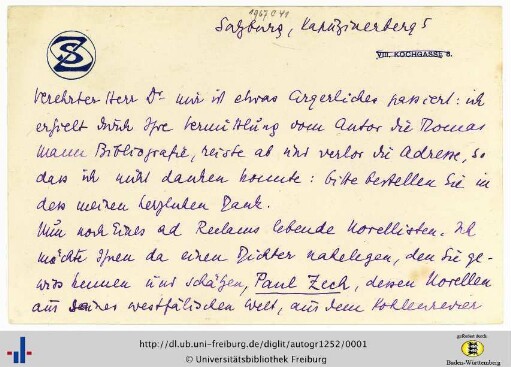 1967 C 41
Salzburg, Kapuzinerberg 5
SZ
VIII. KOCHGASSE 8.
Verehrter Herr Dr mir ist etwas Ärgerliches passiert: ich
erhielt durch Ihre Vermittlung vom Autor die Thomas
Mann Bibliografie, reiste ab und verlor die Adresse, so
dass ich nicht danken konnte: bitte bestellen Sie in
dess meinen herzlichen Dank.
Nun noch Eines ad Reclams lebende Novellisten. Ich
möchte Ihnen da einen Dichter nahelegen, den Sie ge-
wiss kennen und schätzen, Paul Zech, dessen Novellen
aus seiner westfälischen Welt, aus dem Kohlenrevier
http://dl.ub.uni-freiburg.de/diglit/autogr1252/0001
© Universitätsbibliothek Freiburg
gefördert durch
Baden-Württemberg